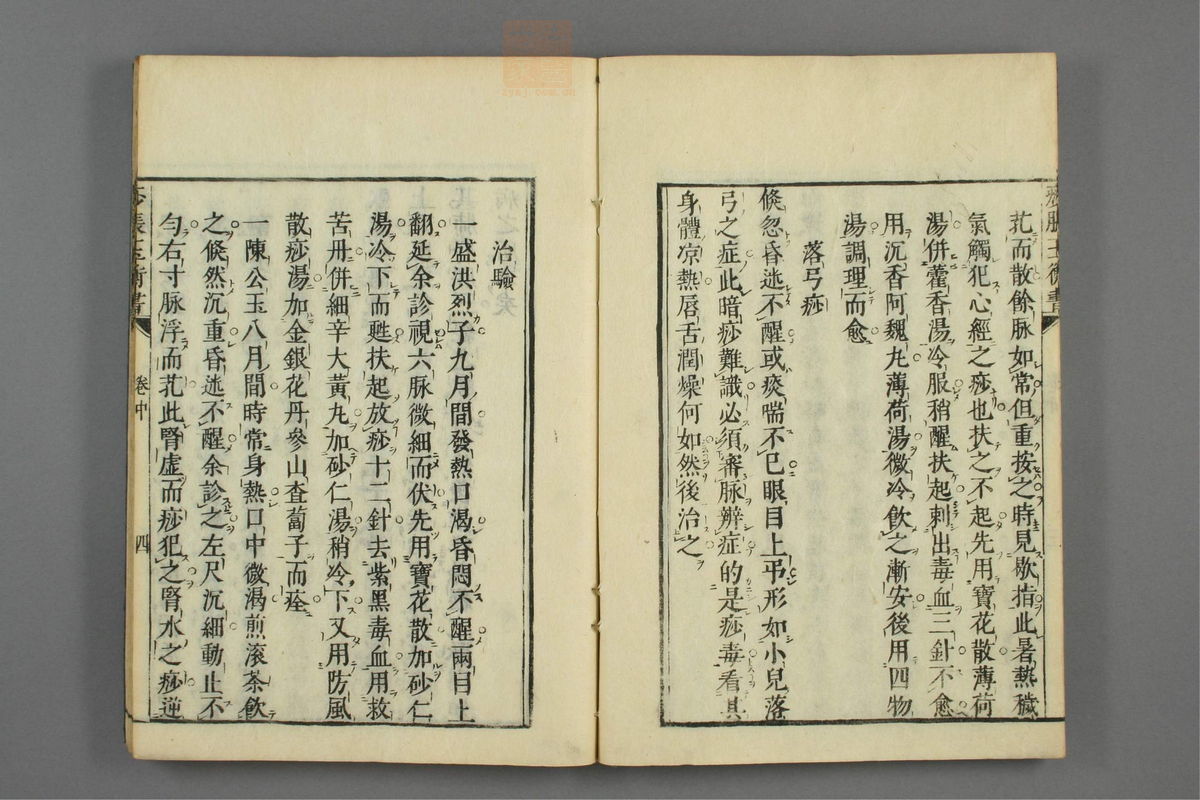 芤而散餘脉如常但重按之時見歇指此暑熱穢
氣觸犯心經之痧也扶之不起先用寶花散薄荷
湯併藿香湯冷服稍醒扶起刺出毒血三針不愈
用沉香阿魏丸薄荷湯微冷飲之漸安後用四物
湯調理而愈
落弓痧
倏忽昏迷不醒或痰喘不已眼目上弔形如小兒落
弓之症此暗痧難識必須審脉辨症的是痧毒看其
身體凉熱唇舌潤燥何如然後治之
治驗
一盛洪烈子九月間發熱口渴昏悶不醒兩目上
翻延余診視六脉微細而伏先用寶花散加砂仁
湯冷下而甦扶起放痧十二針去紫黑毒血用救
苦丹併細辛大黃丸加砂仁湯稍冷下又用防風
散痧湯加金銀花丹參山查蔔子而痊
一陳公玉八月間時常身熱口中微渴煎滾茶飲
之倏然沉重昏迷不醒余診之左尺沉細動止不
勻右寸脉浮而芤此腎虛而痧犯之腎水之痧逆
卷中
四